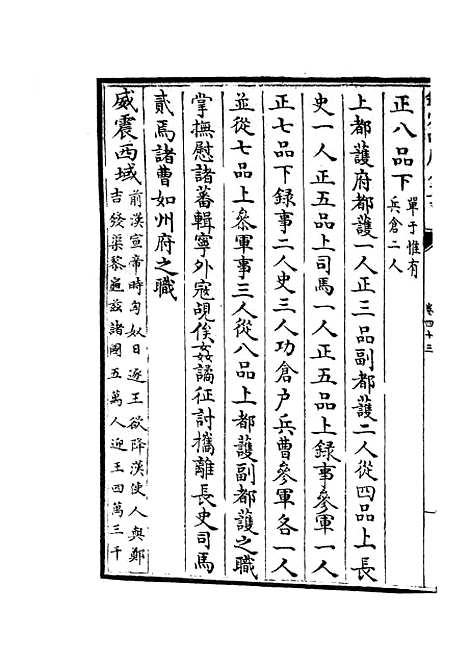 正八品下單于惟有
兵倉二人
上都護府都護一人正三品副都護二人從四品上長
史一人正五品上司馬一人正五品上録事參軍一人
正七品下録事二人史三人功倉户兵曹參軍各一人
並從七品上叅軍事三人從八品上都護副都護之職
掌撫慰諸蕃輯寧外寇覘候姦譎征討攜離長史司馬
貳焉諸曹如州府之職
威震西域前漢宣帝時匈奴日逐王欲降漢使人與鄭
吉發渠黎龜茲諸國五萬人迎王四萬三千
卷四十三